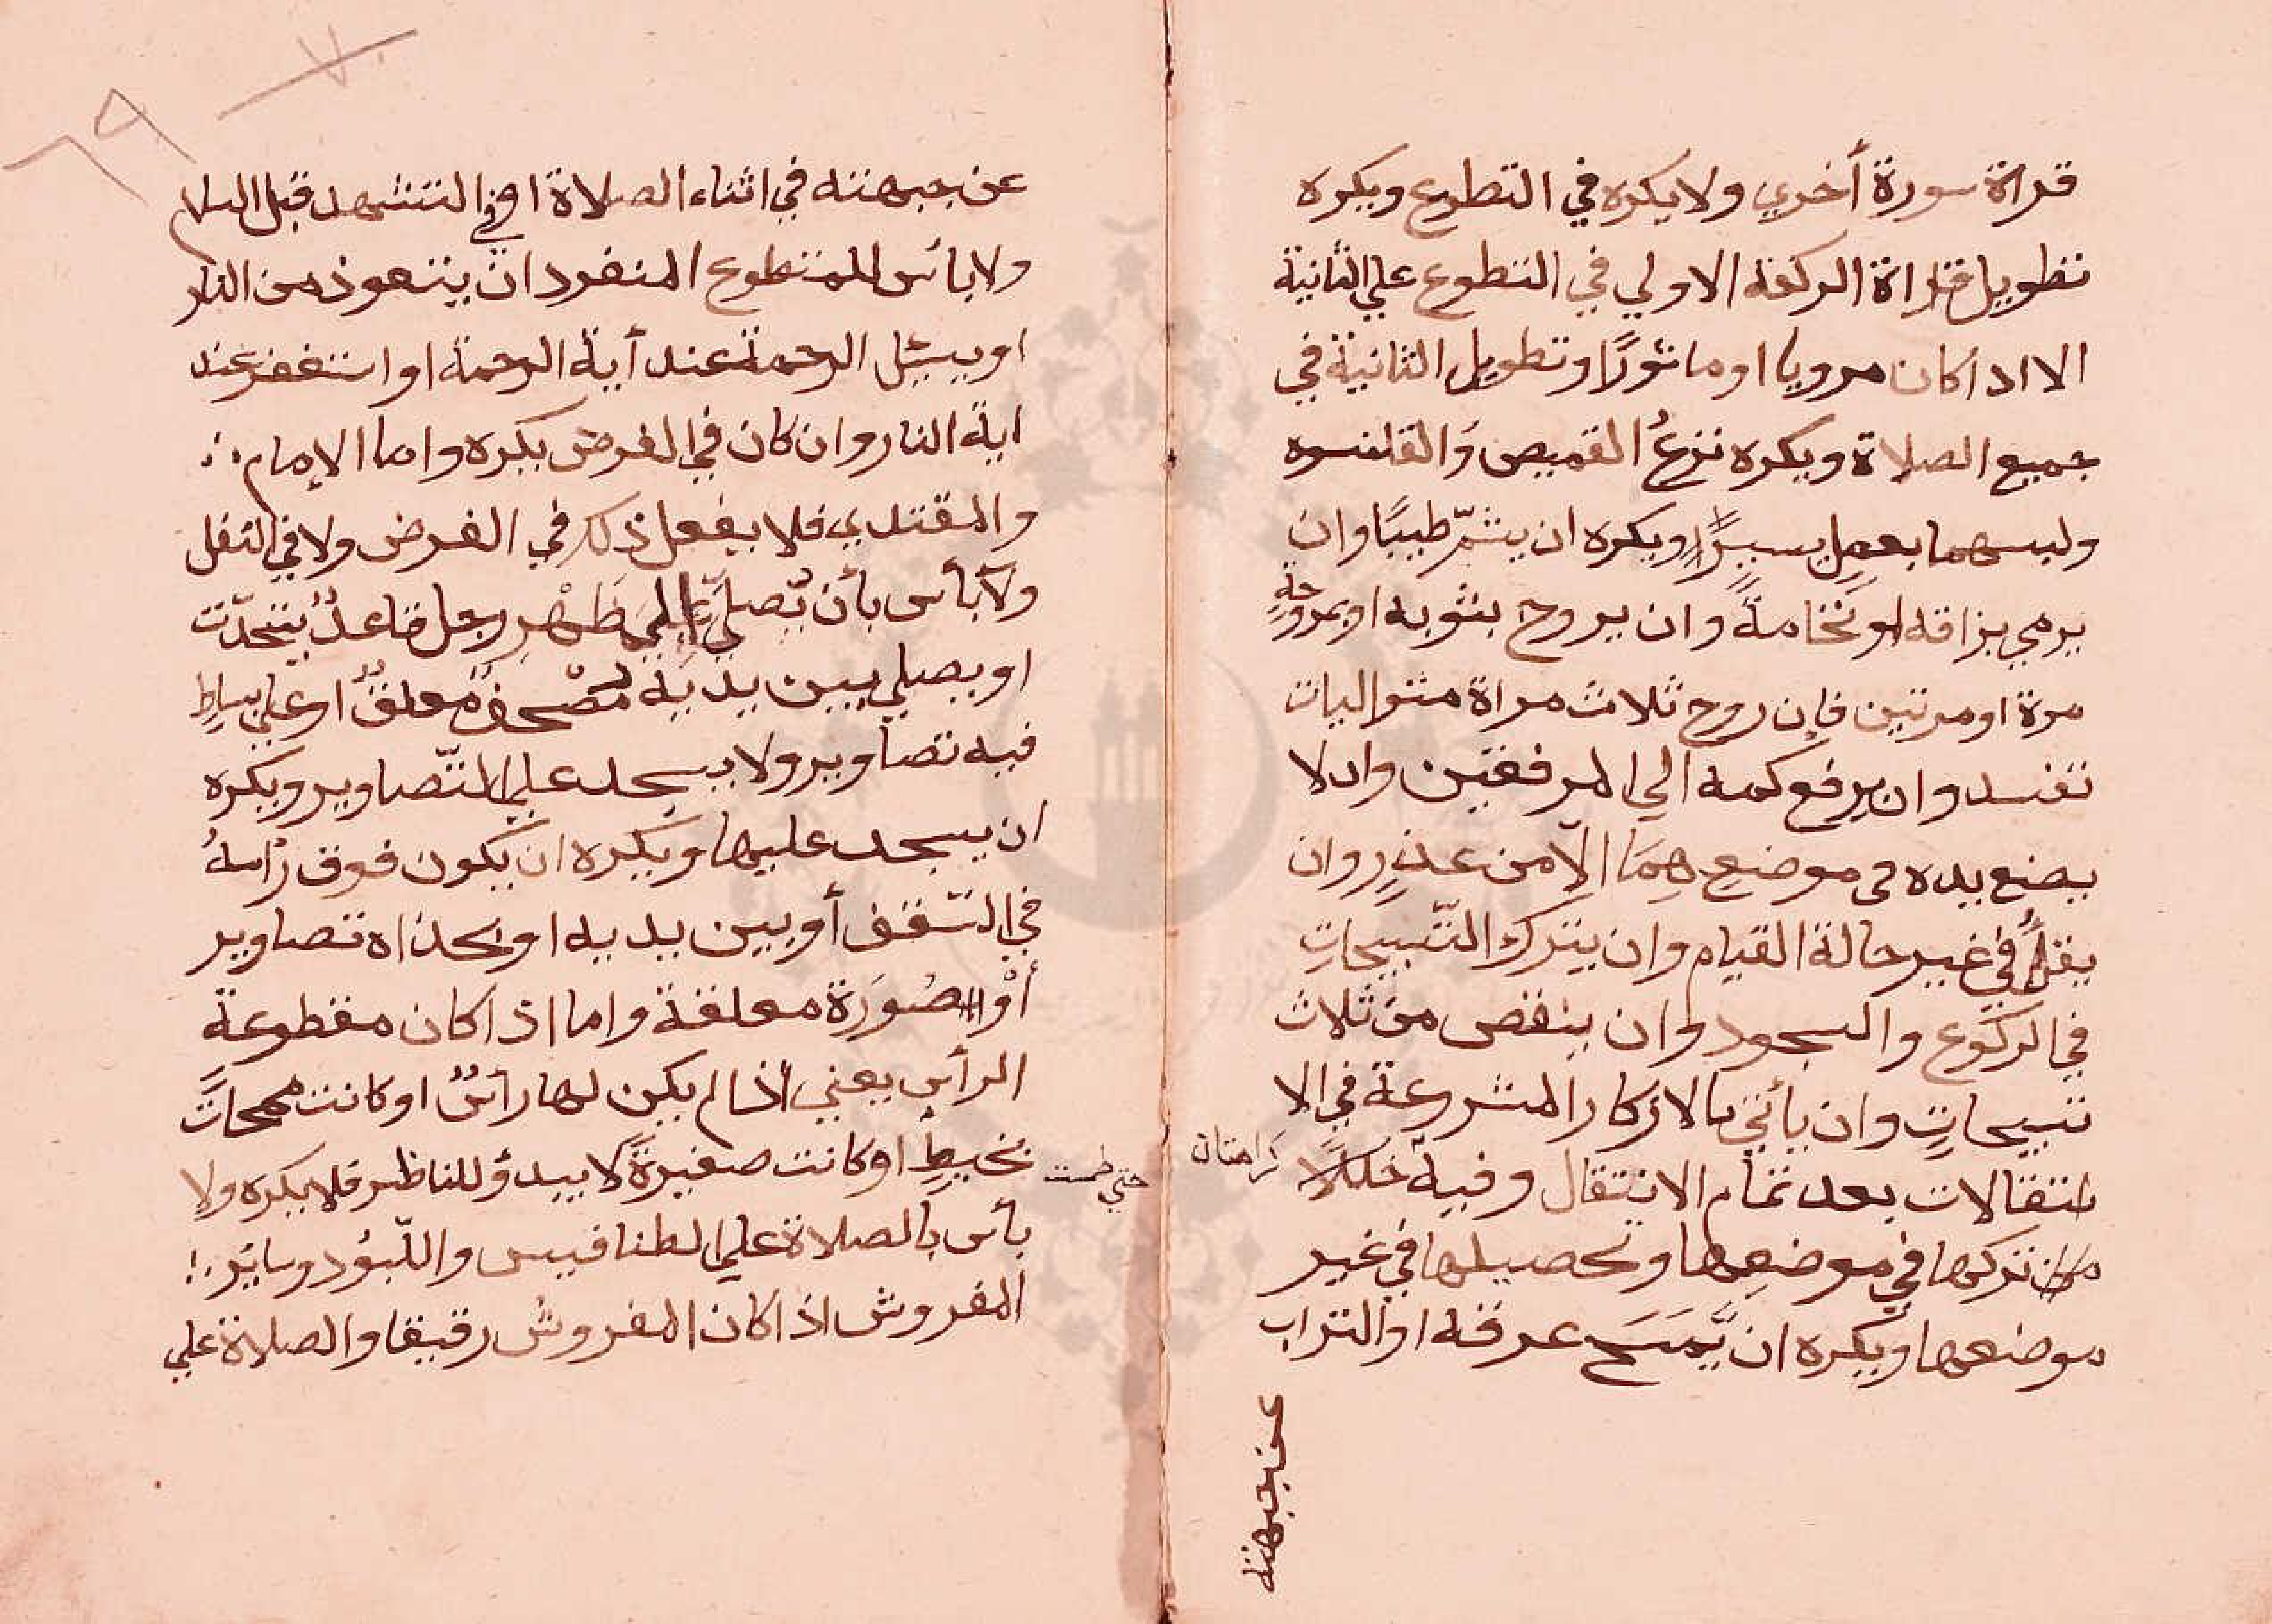 قراة سورة أخري ولا يكره في التطوع ويكره
تطويل قراة الركعة الاولي في التطوع علي الثانية
الا اذا كان مرويا او ماثورًا وتطويل الثانية في
جميع الصلاة ويكره نزعُ القميص وَالقلنسوه
ولبسهما بعمل يسيرًا ويكره ان يشمّ طيبًا وان
يرمي بزاقه او نخامةً وان يروح بثوبه او بمروحةٍ
مرة او مرتين فإن روح ثلاث مراة متواليات
تفسد وان يرفع كمه الي المرفقين وان لا
يضع يده في موضعِ هِمَا الّا من عذرٍ وان
يقرأُ في غير حالة القيام وان يترك التّسبيحاتِ
في الركوع والسجود وان ينقص من ثلاث
تسبيحاتٍ وان يأتي بالاذكار المشروعة في الا
نتقالات بعد تمام الانتقال وفيه خللًا
كراهتان
تركها في موضعِها وتحصيلها في غير
موضعها ويكره ان يَّمسَحَ عرقه او التراب
عن جبهته
٧٠
٦٩
عن جبهته في اثناء الصلاة او في التشهد قبل السلام
ولا بأس للمتطوع المنفرد ان يتعوذ من النار
او يسئل الرحمة عند أية الرحمة او استغفر عند
اية النار وان كان في الفرض يكره واما الإمام
والمقتدي فلا يفعل ذلك في الفرض ولا في النفل
ولا بأس بأن يّصلّي إلي ظَهْرِ رجل قاعدٌ يتحدّث
او يصلي بين يديه مُصْحفٌ معلقٌ او علي بساطٍ
فيه تصاوير ولا يسجد علي التّصاوير ويكره
ان يسجد عليها ويكره ان يكون فوق رأسهُ
في السّقف أو بين يديه او بحذاه تصاوير
أوْ صُورَة معلقة واما اذا كان مقطوعة
الرأس يعني اذا لم يكن لها رأسٌ او كانت ممحاتً
بخيطٍ او كانت صغيرةً لا يبدؤ للناظر فلا يكره ولا
حتي طمست
بأس بالصلاة علي الطنافيس واللّبوُد وسايَر
المفروش اذا كان المفروش رقيقا والصلاة علي